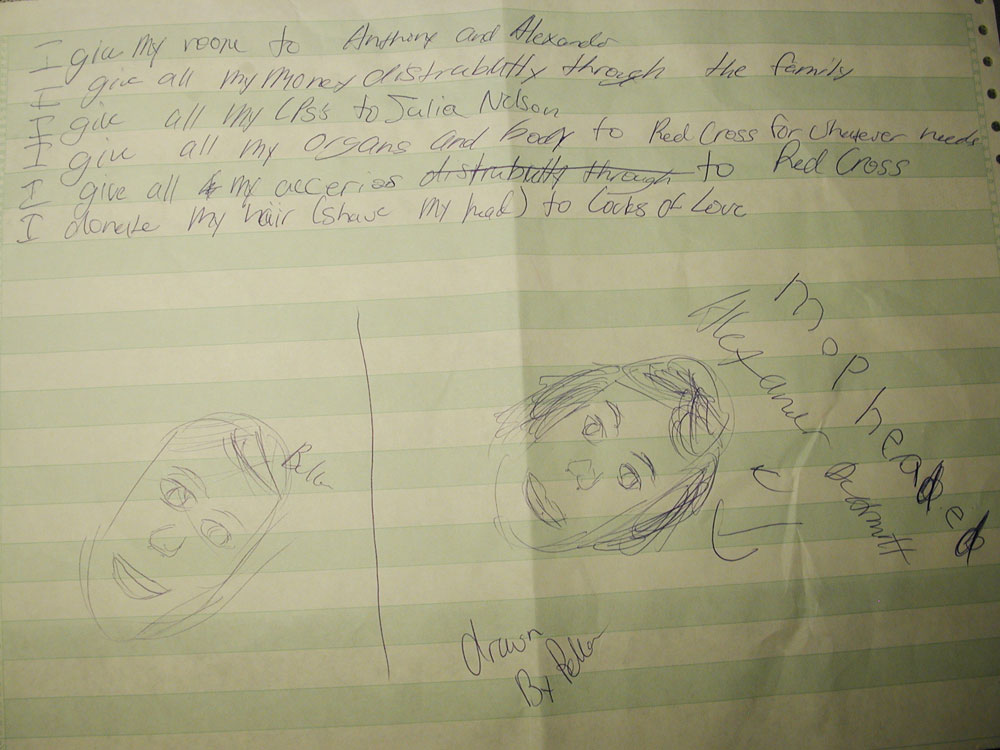 I give my room to Anthony and Alexander
I give all my money distrubuttly through the family
I give all my LPS's to Julia Nelson
I give all my organs and body to Red Cross for whatever needs
I give all my accerios distrubuttly through to Red Cross
I donate my hair (shave my head) to Locks of Love
mop headed
Alexander
Bella
drawn
By Bella